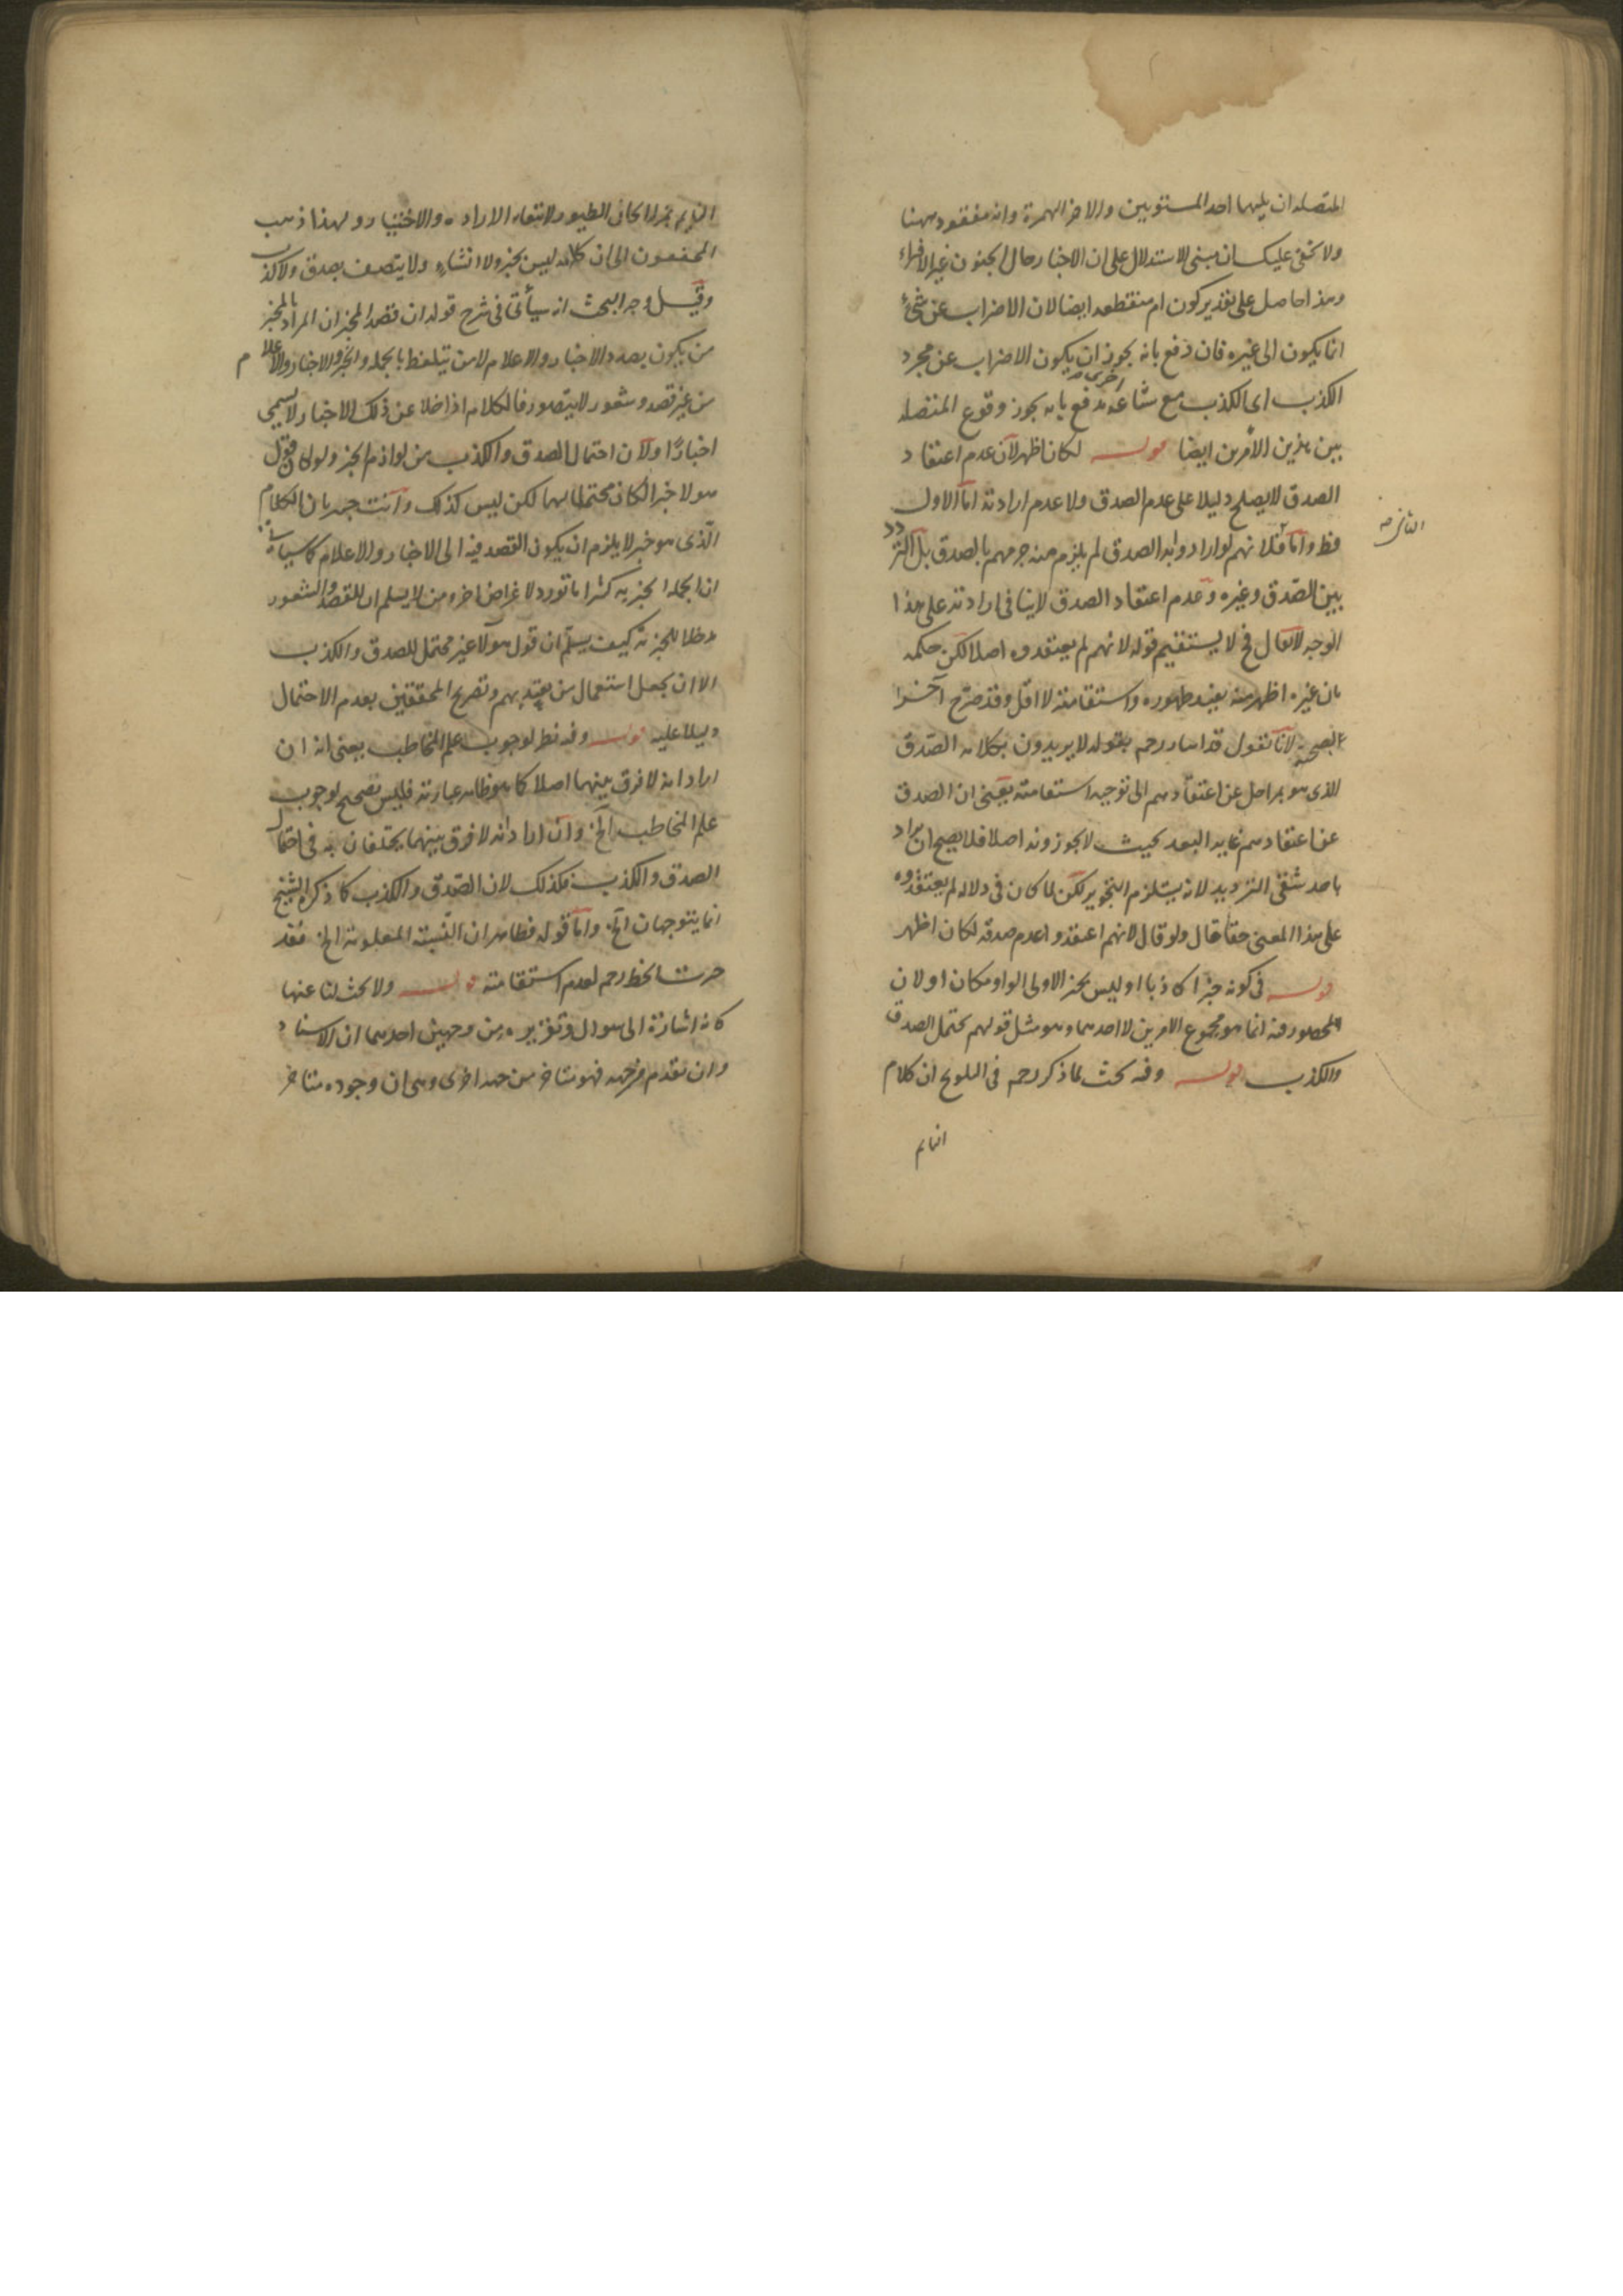 المتصله ان يليها احد المستويين والاخر الهمزة وانه مفقود ههنا
ولا يخفى عليك ان مبنى الاستدلال على ان الاخبار حال الجنون غير الافتراء
وهذا حاصل على تقدير كون ام منقطعه ايضا لان الاضراب عن شئ
انما يكون الى غيره فان دفع بانه يجوز ان يكون الاضراب عن مجرد
الكذب الى الكذب مع شناعة اخرى يدفع بانه يجوز وقوع المتصله
بين هذين الامرين ايضا قوله لكان اظهر لان عدم اعتقاد
الصدق لا يصلح دليلا على عدم الصدق ولا عدم ارادته اما الاول
فظ واما فلانهم لو ارادوا به الصدق لم يلزم منه جزمهم بالصدق بل التردد
الثانى صح
بين الصدق وغيره وعدم اعتقاد الصدق لا ينافى ارادته على هذا
الوجه لا يقال فح لا يستقيم قوله لانهم لم يعتقدوه اصلا لكن حكمه
بان غيره اظهر منه يفيد ظهوره واستقامته لا اقل وقد صرح آخرا
بصحته لانا نقول قد اشار رحمه بقوله لا يريدون بكلامه الصدق
الذى هو بمراحل عن اعتقادهم الى توجيه استقامته يعنى ان الصدق
عن اعتقادهم غاية البعد بحيث لا يجوزونه اصلا فلا يصح ان يراد
باحد شقى الترديد لانه يستلزم التجويز لكن لما كان فى دلالة لم يعتقدوه
على هذا المعنى خفأ قال ولو قال لانهم اعتقدوا عدم صدقه لكان اظهر
قوله فى كونه خبرا كاذبا او ليس بخبر الاولى الواو مكان او لان
المحصور فيه انما هو مجموع الامرين لا احدهما وهو مثل قولهم يحتمل الصدق
والكذب قوله وفيه بحث لما ذكر رحمه فى التلويح ان كلام
النايم
النايم بمنزلة الحان الطيور لانتفاء الارادة والاختيار ولهذا ذهب
المحققون الى ان كلامه ليس بخبر ولا انشاء ولا يتصف بصدق ولا كذب
وقيل وجه البحث انه سيأتى فى شرح قوله ان قصد المخبر ان المراد بالمخبر
من يكون بصدد الاخبار والاعلام لا من يتلفظ بالجملة والخبر والاخبار والاعلام
من غير قصد وشعور لا يتصور فالكلام اذا خلا عن ذلك الاخبار لا يسمى
اخبارًا ولان احتمال الصدق والكذب من لوازم الخبر ولو كان قول
هولا خبرا لكان محتملا لهما لكن ليس كذلك وانت خبير بان الكلام
الذى هو خبر لا يلزم ان يكون القصد فيه الى الاخبار والاعلام كما سياتى
ان الجملة الخبرية كثيرا ما تورد لاغراض اخر ومن لا يسلم ان للقصد والشعور
مدخلا للخبرية كيف يسلم ان قول هولا غير محتمل للصدق والكذب
الا ان يجعل استعمال من يعتد بهم وتصريح المحققين بعدم الاحتمال
دليلا عليه قوله وفيه نظر لوجوب علم المخاطب يعنى انه ان
اراد انه لا فرق بينهما اصلا كما هو ظاهر عبارته فليس بصحيح لوجوب
علم المخاطب الخ وان اراد انه لا فرق بينهما يختلفان به فى احتمال
الصدق والكذب فكذلك لان الصدق والكذب كما ذكره الشيخ
انما يتوجهان الخ واما قوله فظاهر ان النسبة المعلومة الخ فقد
ضرب الخط رحمه لعدم استقامته قوله ولا بحث لنا عنها
كانه اشارة الى سوال وتقريره من وجهين احدهما ان الاسناد
وان تقدم من جهه فهو متاخر من جهه اخرى وهى ان وجوده متاخر